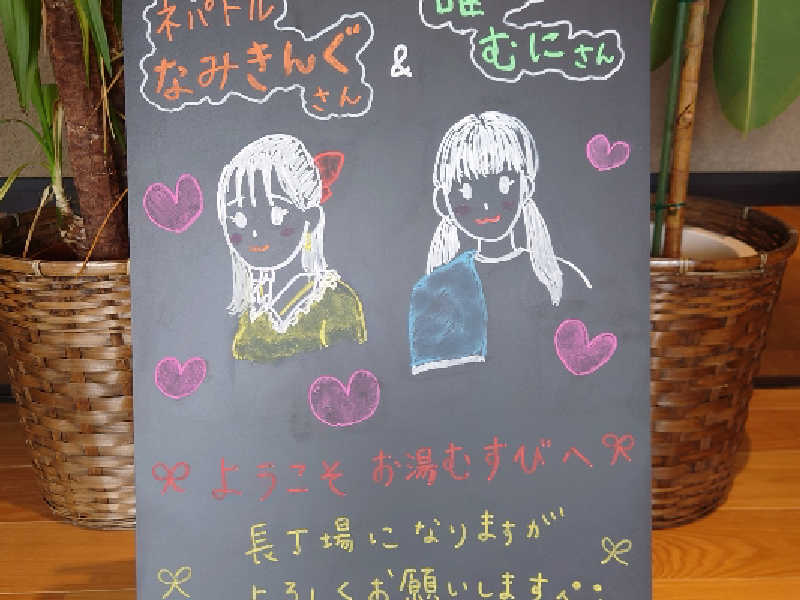 ネパドル
なみきんぐ
さん
&
唯
むにさん
ようこそ お湯むすびへ
長丁場になりますが
よろしくお願いします